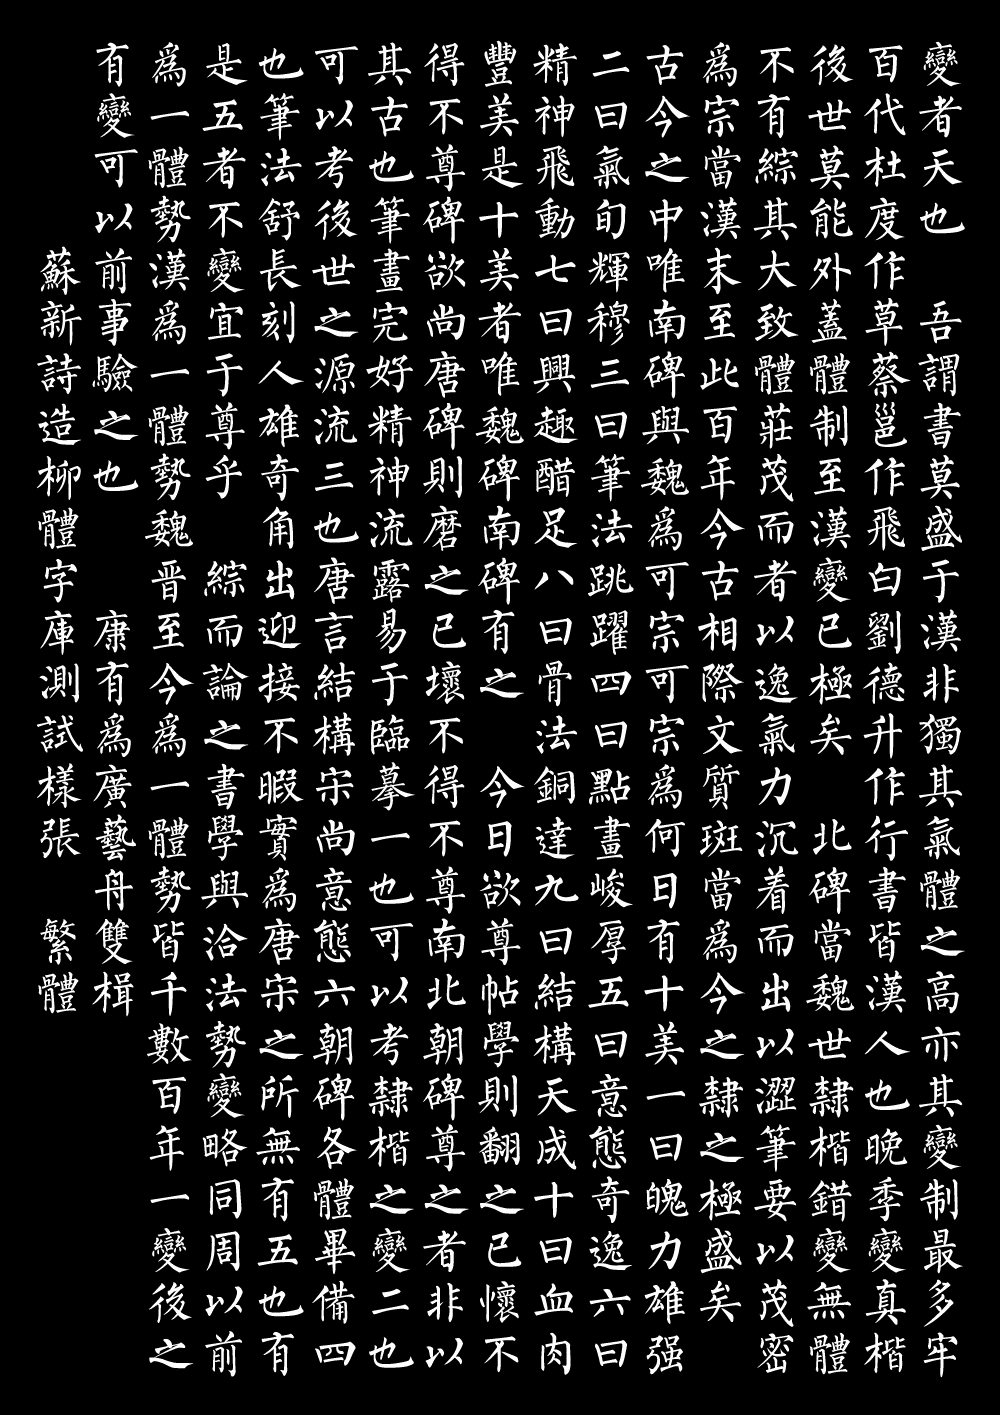 變者天也　吾謂書莫盛于漢非獨其氣體之高亦其變制最多牢
百代杜度作草蔡邕作飛白劉德升作行書皆漢人也晚季變真楷
後世莫能外蓋體制至漢變已極矣　北碑當魏世隸楷錯變無體
不有綜其大致體莊茂而者以逸氣力沉着而出以澀筆要以茂密
爲宗當漢末至此百年今古相際文質斑當爲今之隸之極盛矣
古今之中唯南碑與魏爲可宗可宗爲何日有十美一曰魄力雄强
二曰氣旬輝穆三曰筆法跳躍四曰點畫峻厚五曰意態奇逸六曰
精神飛動七曰興趣醋足八曰骨法銅達九曰結構天成十曰血肉
豐美是十美者唯魏碑南碑有之　今日欲尊帖學則翻之已懷不
得不尊碑欲尚唐碑則磨之已壞不得不尊南北朝碑尊之者非以
其古也筆畫完好精神流露易于臨摹一也可以考隸楷之變二也
可以考後世之源流三也唐言結構宋尚意態六朝碑各體畢備四
也筆法舒長刻人雄奇角出迎接不暇實爲唐宋之所無有五也有
是五者不變宜于尊乎　綜而論之書學與洽法勢變略同周以前
爲一體勢漢爲一體勢魏晋至今爲一體勢皆千數百年一變後之
有變可以前事驗之也　康有爲廣藝舟雙楫
蘇新詩造柳體字庫測試樣張　繁體